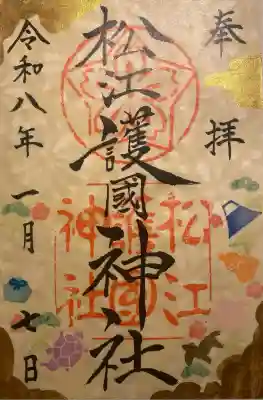 奉拝
松江護國神社
令和八年一月七日
松江
護國
神社